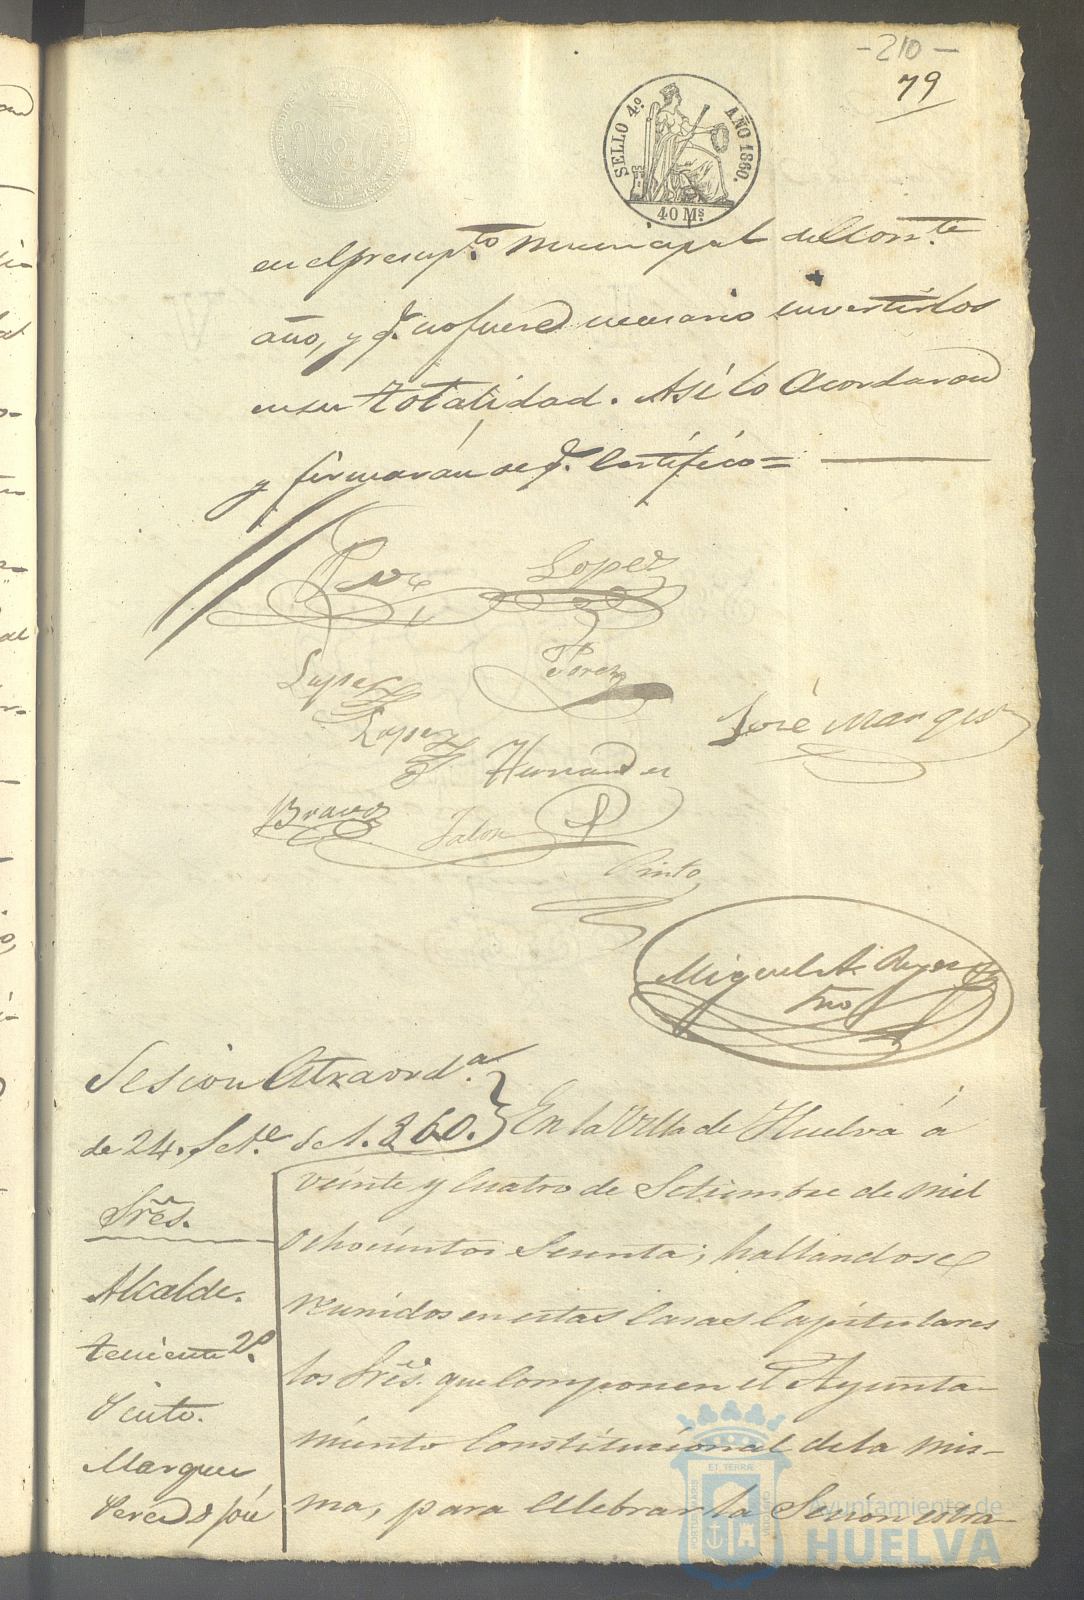 -210-
79
SELLO 4.º AÑO 1860.
40 Ms
en el presup.to Municipal del Corr.te
año, y q.e no fuere necesario invertirlos
en su totalidad. Así lo Acordaron
y firmarán de q.e Certifico=
Lopez
Lopez
Perez
José Marquez
Lopez
Hernandez
Bravo
Jalon
Pinto
Miguel A. Reyes
Srio
Sesion Extraord.a
de 24. Set.e de 1.860.
En la Villa de Huelva á
veinte y cuatro de Setiembre de mil
ochocientos Sesenta; hallandose
reunidos en estas Casas Capitulares
los Sres. que componen el Ayunta-
miento Constitucional de la mis-
ma, para celebrar la Sesion estra-
Sres.
Alcalde.
teniente 2.º
Pinto.
Marquez
Perez
Ayuntamiento de
HUELVA